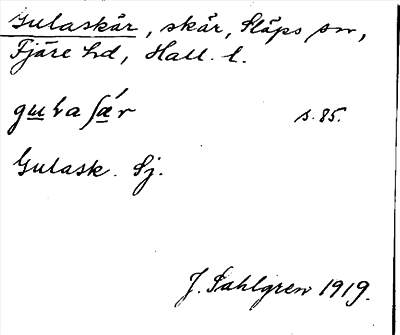 Gulaskär, skär, Släps sn,
Fjäre hd, Hall. l.
gulaʃǽr s. 85.
Gulask. Sj.
J. Sahlgren 1919.